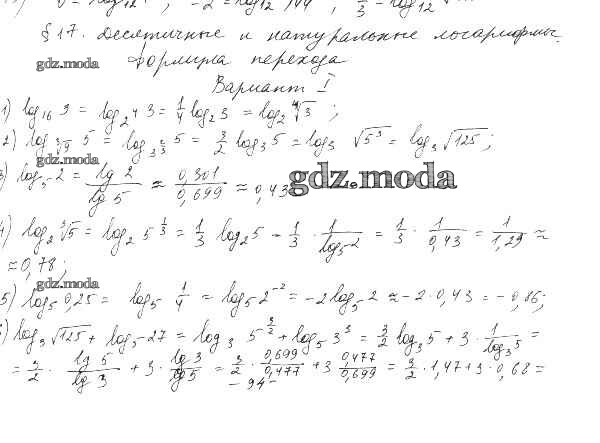 § 17. Десятичные и натуральные логарифмы.
gdz.moda Формула перехода
Вариант I
1) log₁₆ 3 = log₂⁴ 3 = 1/4 log₂ 3 = log₂ ⁴√3 ;
2) log ∛9 5 = log 3^(2/3) 5 = 3/2 log₃ 5 = log₃ √5³ = log₃ √125;
gdz.moda
3) log₅ 2 = lg 2 / lg 5 ≈ 0,301 / 0,699 ≈ 0,43
gdz.moda
4) log₂ ∛5 = log₂ 5^(1/3) = 1/3 log₂ 5 - 1/3 · 1/log₅ 2 = 1/3 · 1/0,43 = 1/1,29 ≈
≈ 0,78;
gdz.moda
5) log₅ 0,25 = log₅ 1/4 = log₅ 2⁻² = -2 log₅ 2 ≈ -2 · 0,43 = -0,86;
log₃ √125 + log₅ 27 = log₃ 5^(3/2) + log₅ 3³ = 3/2 log₃ 5 + 3 · 1/log₃ 5 =
= 3/2 · lg 5 / lg 3 + 3 · lg 3 / lg 5 = 3/2 · 0,699 / 0,477 + 3 0,477 / 0,699 = 3/2 · 1,47 + 3 · 0,68 =
- 94 -